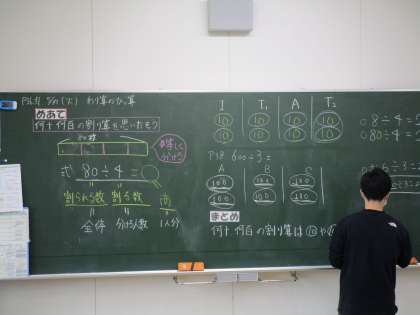 わり算のひっ算
めあて
何十何百の割り算を思いだそう
80枚
等しく
分ける
式 80÷4=
割られる数 割る数 商
全体 分ける人数 1人分
I T₁ A T₂
10 10 10 10
10 10 10 10
P38 600÷3=
A B C
100 100 100
100 100 100
まとめ
何十何百の割り算は⑩や
8÷4=2
80÷4=
6÷3=